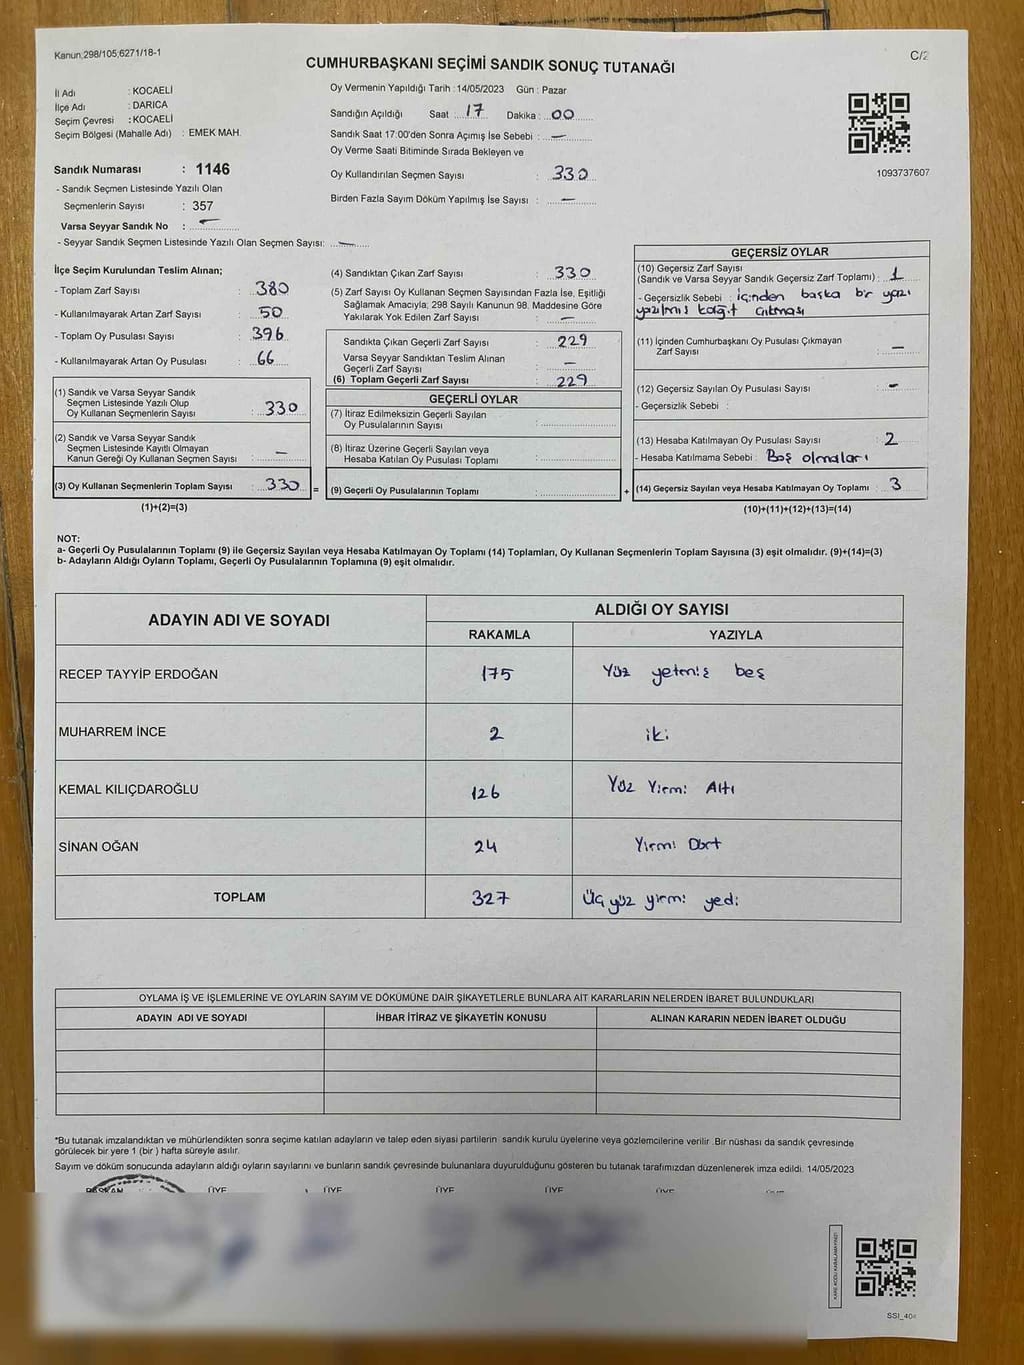 Kanun,298/105,6271/18-1
C/2
CUMHURBAŞKANI SEÇİMİ SANDIK SONUÇ TUTANAĞI
İl Adı : KOCAELİ
İlçe Adı : DARICA
Seçim Çevresi : KOCAELİ
Seçim Bölgesi (Mahalle Adı) : EMEK MAH.
Sandık Numarası : 1146
- Sandık Seçmen Listesinde Yazılı Olan
Seçmenlerin Sayısı : 357
Varsa Seyyar Sandık No : —
- Seyyar Sandık Seçmen Listesinde Yazılı Olan Seçmen Sayısı: —
Oy Vermenin Yapıldığı Tarih : 14/05/2023 Gün : Pazar
Sandığın Açıldığı Saat 17 Dakika : 00
Sandık Saat 17:00'den Sonra Açımış İse Sebebi : —
Oy Verme Saati Bitiminde Sırada Bekleyen ve
Oy Kullandırılan Seçmen Sayısı : 330
Birden Fazla Sayım Döküm Yapılmış İse Sayısı : —
1093737607
İlçe Seçim Kurulundan Teslim Alınan;
- Toplam Zarf Sayısı : 380
- Kullanılmayarak Artan Zarf Sayısı : 50
- Toplam Oy Pusulası Sayısı : 396
- Kullanılmayarak Artan Oy Pusulası : 66
(1) Sandık ve Varsa Seyyar Sandık
Seçmen Listesinde Yazılı Olup
Oy Kullanan Seçmenlerin Sayısı : 330
(2) Sandık ve Varsa Seyyar Sandık
Seçmen Listesinde Kayıtlı Olmayan
Kanun Gereği Oy Kullanan Seçmen Sayısı : —
(3) Oy Kullanan Seçmenlerin Toplam Sayısı : 330 =
(1)+(2)=(3)
(4) Sandıktan Çıkan Zarf Sayısı : 330
(5) Zarf Sayısı Oy Kullanan Seçmen Sayısından Fazla İse, Eşitliği
Sağlamak Amacıyla; 298 Sayılı Kanunun 98. Maddesine Göre
Yakılarak Yok Edilen Zarf Sayısı : —
Sandıkta Çıkan Geçerli Zarf Sayısı : 229
Varsa Seyyar Sandıktan Teslim Alınan
Geçerli Zarf Sayısı : —
(6) Toplam Geçerli Zarf Sayısı : 229
GEÇERLİ OYLAR
(7) İtiraz Edilmeksizin Geçerli Sayılan
Oy Pusulalarının Sayısı :
(8) İtiraz Üzerine Geçerli Sayılan veya
Hesaba Katılan Oy Pusulası Toplamı :
(9) Geçerli Oy Pusulalarının Toplamı : +
GEÇERSİZ OYLAR
(10) Geçersiz Zarf Sayısı
(Sandık ve Varsa Seyyar Sandık Geçersiz Zarf Toplamı) : 1
- Geçersizlik Sebebi : içinden başka bir yazı
yazılmış kağıt çıkması
(11) İçinden Cumhurbaşkanı Oy Pusulası Çıkmayan
Zarf Sayısı : —
(12) Geçersiz Sayılan Oy Pusulası Sayısı : -
- Geçersizlik Sebebi :
(13) Hesaba Katılmayan Oy Pusulası Sayısı : 2
- Hesaba Katılmama Sebebi : Boş olmaları
(14) Geçersiz Sayılan veya Hesaba Katılmayan Oy Toplamı : 3
(10)+(11)+(12)+(13)=(14)
NOT:
a- Geçerli Oy Pusulalarının Toplamı (9) ile Geçersiz Sayılan veya Hesaba Katılmayan Oy Toplamı (14) Toplamları, Oy Kullanan Seçmenlerin Toplam Sayısına (3) eşit olmalıdır. (9)+(14)=(3)
b- Adayların Aldığı Oyların Toplamı, Geçerli Oy Pusulalarının Toplamına (9) eşit olmalıdır.
ADAYIN ADI VE SOYADI
ALDIĞI OY SAYISI
RAKAMLA YAZIYLA
RECEP TAYYİP ERDOĞAN 175 Yüz yetmiş beş
MUHARREM İNCE 2 iki
KEMAL KILIÇDAROĞLU 126 Yüz Yirmi Altı
SİNAN OĞAN 24 Yirmi Dört
TOPLAM 327 Üç yüz yirmi yedi
OYLAMA İŞ VE İŞLEMLERİNE VE OYLARIN SAYIM VE DÖKÜMÜNE DAİR ŞİKAYETLERLE BUNLARA AİT KARARLARIN NELERDEN İBARET BULUNDUKLARI
ADAYIN ADI VE SOYADI İHBAR İTİRAZ VE ŞİKAYETİN KONUSU ALINAN KARARIN NEDEN İBARET OLDUĞU
*Bu tutanak imzalandıktan ve mühürlendikten sonra seçime katılan adayların ve talep eden siyasi partilerin sandık kurulu üyelerine veya gözlemcilerine verilir .Bir nüshası da sandık çevresinde
görülecek bir yere 1 (bir ) hafta süreyle asılır.
Sayım ve döküm sonucunda adayların aldığı oyların sayılarını ve bunların sandık çevresinde bulunanlara duyurulduğunu gösteren bu tutanak tarafımızdan düzenlenerek imza edildi. 14/05/2023
BAŞKAN ÜYE ÜYE ÜYE ÜYE ÜYE
KARE KODU KARALAMAYINIZ!